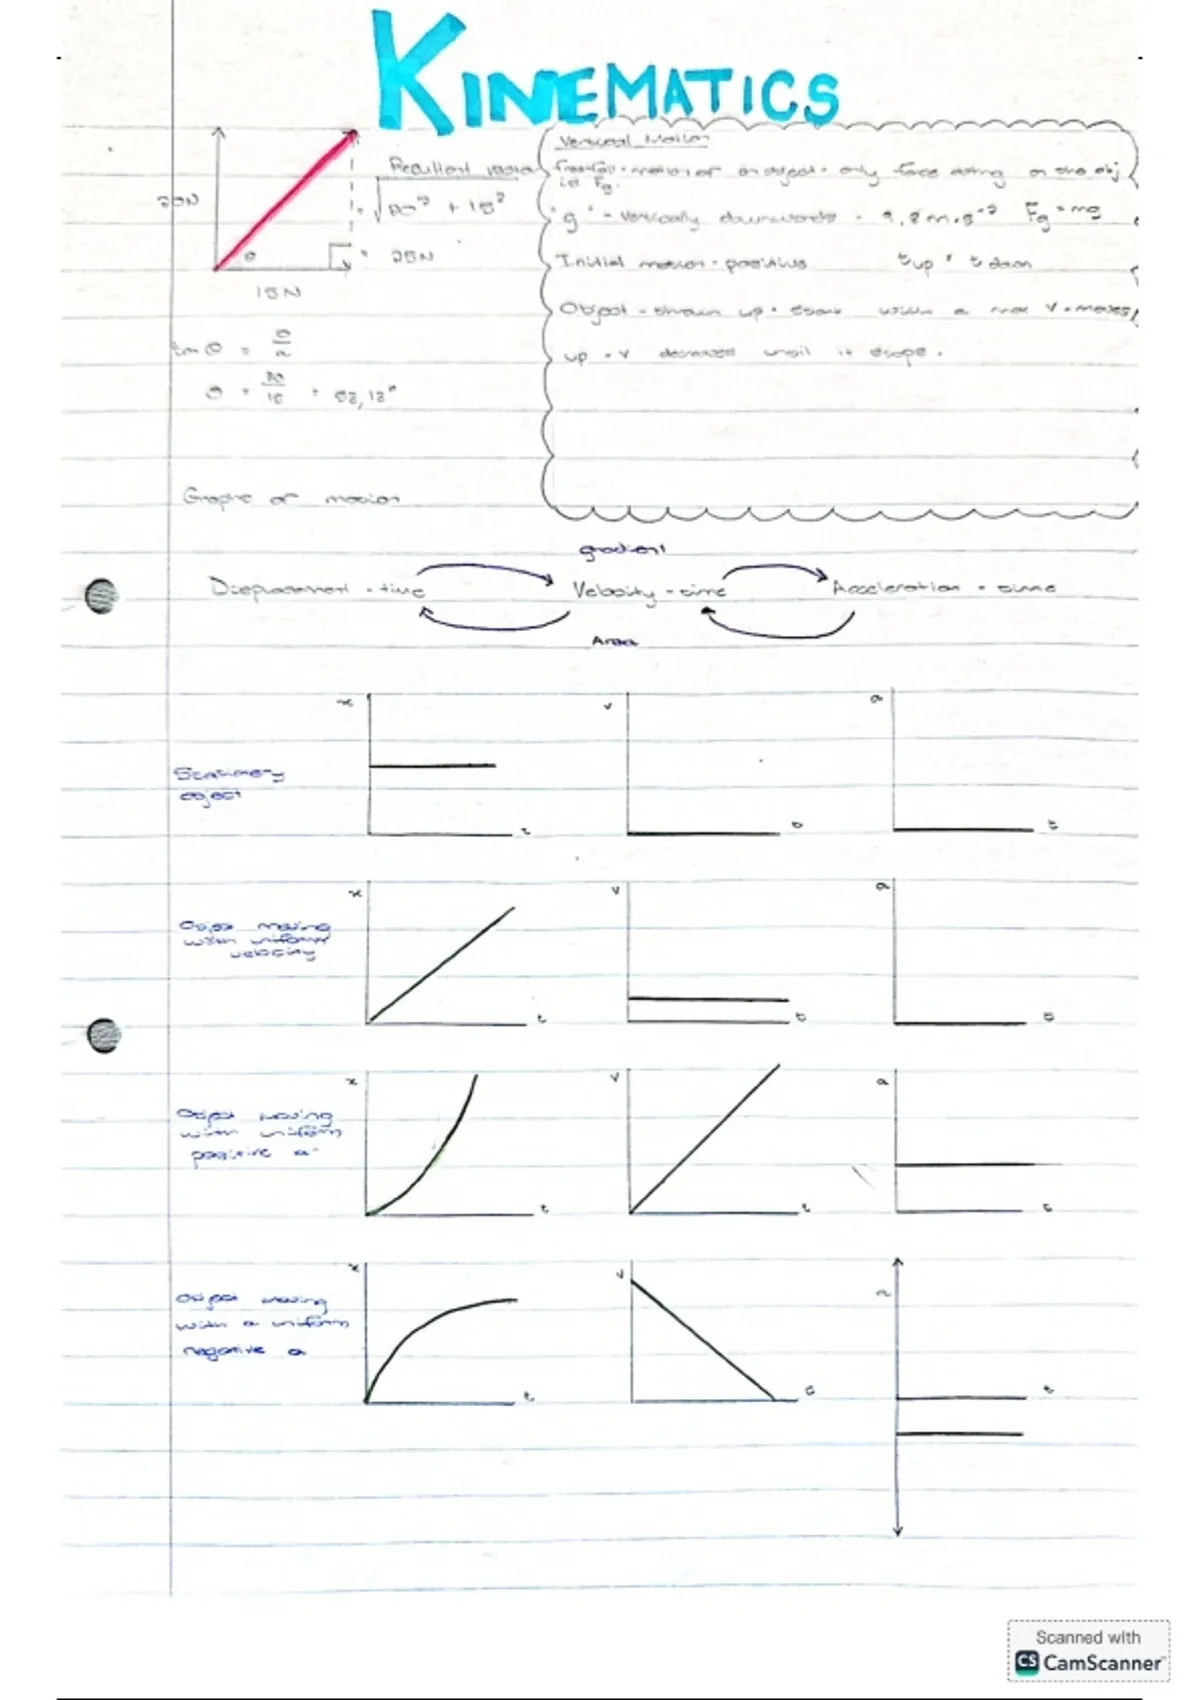 KINEMATICS
20N
15N
θ
Resultant vector
= √20² + 15²
= 25N
tan θ = o/a
θ = 20/15 = 53,13°
Vertical Motion
freefall - motion of an object - only force acting on the obj
is Fg.
"g" - vertically downwards - 9,8 m.s⁻² Fg = mg
Initial motion - positive t up = t down
Object - thrown up - start with a max v - moves
up - v decreases until it stops.
Graphs of motion
gradient
Displacement - time Velocity - time Acceleration - time
Area
x v a
Stationary
object
t t t
x v a
Object moving
with uniform
velocity
t t t
x v a
Object moving
with uniform
positive a
t t t
x v a
Object moving
with a uniform
negative a
t t t
Scanned with
CS CamScanner